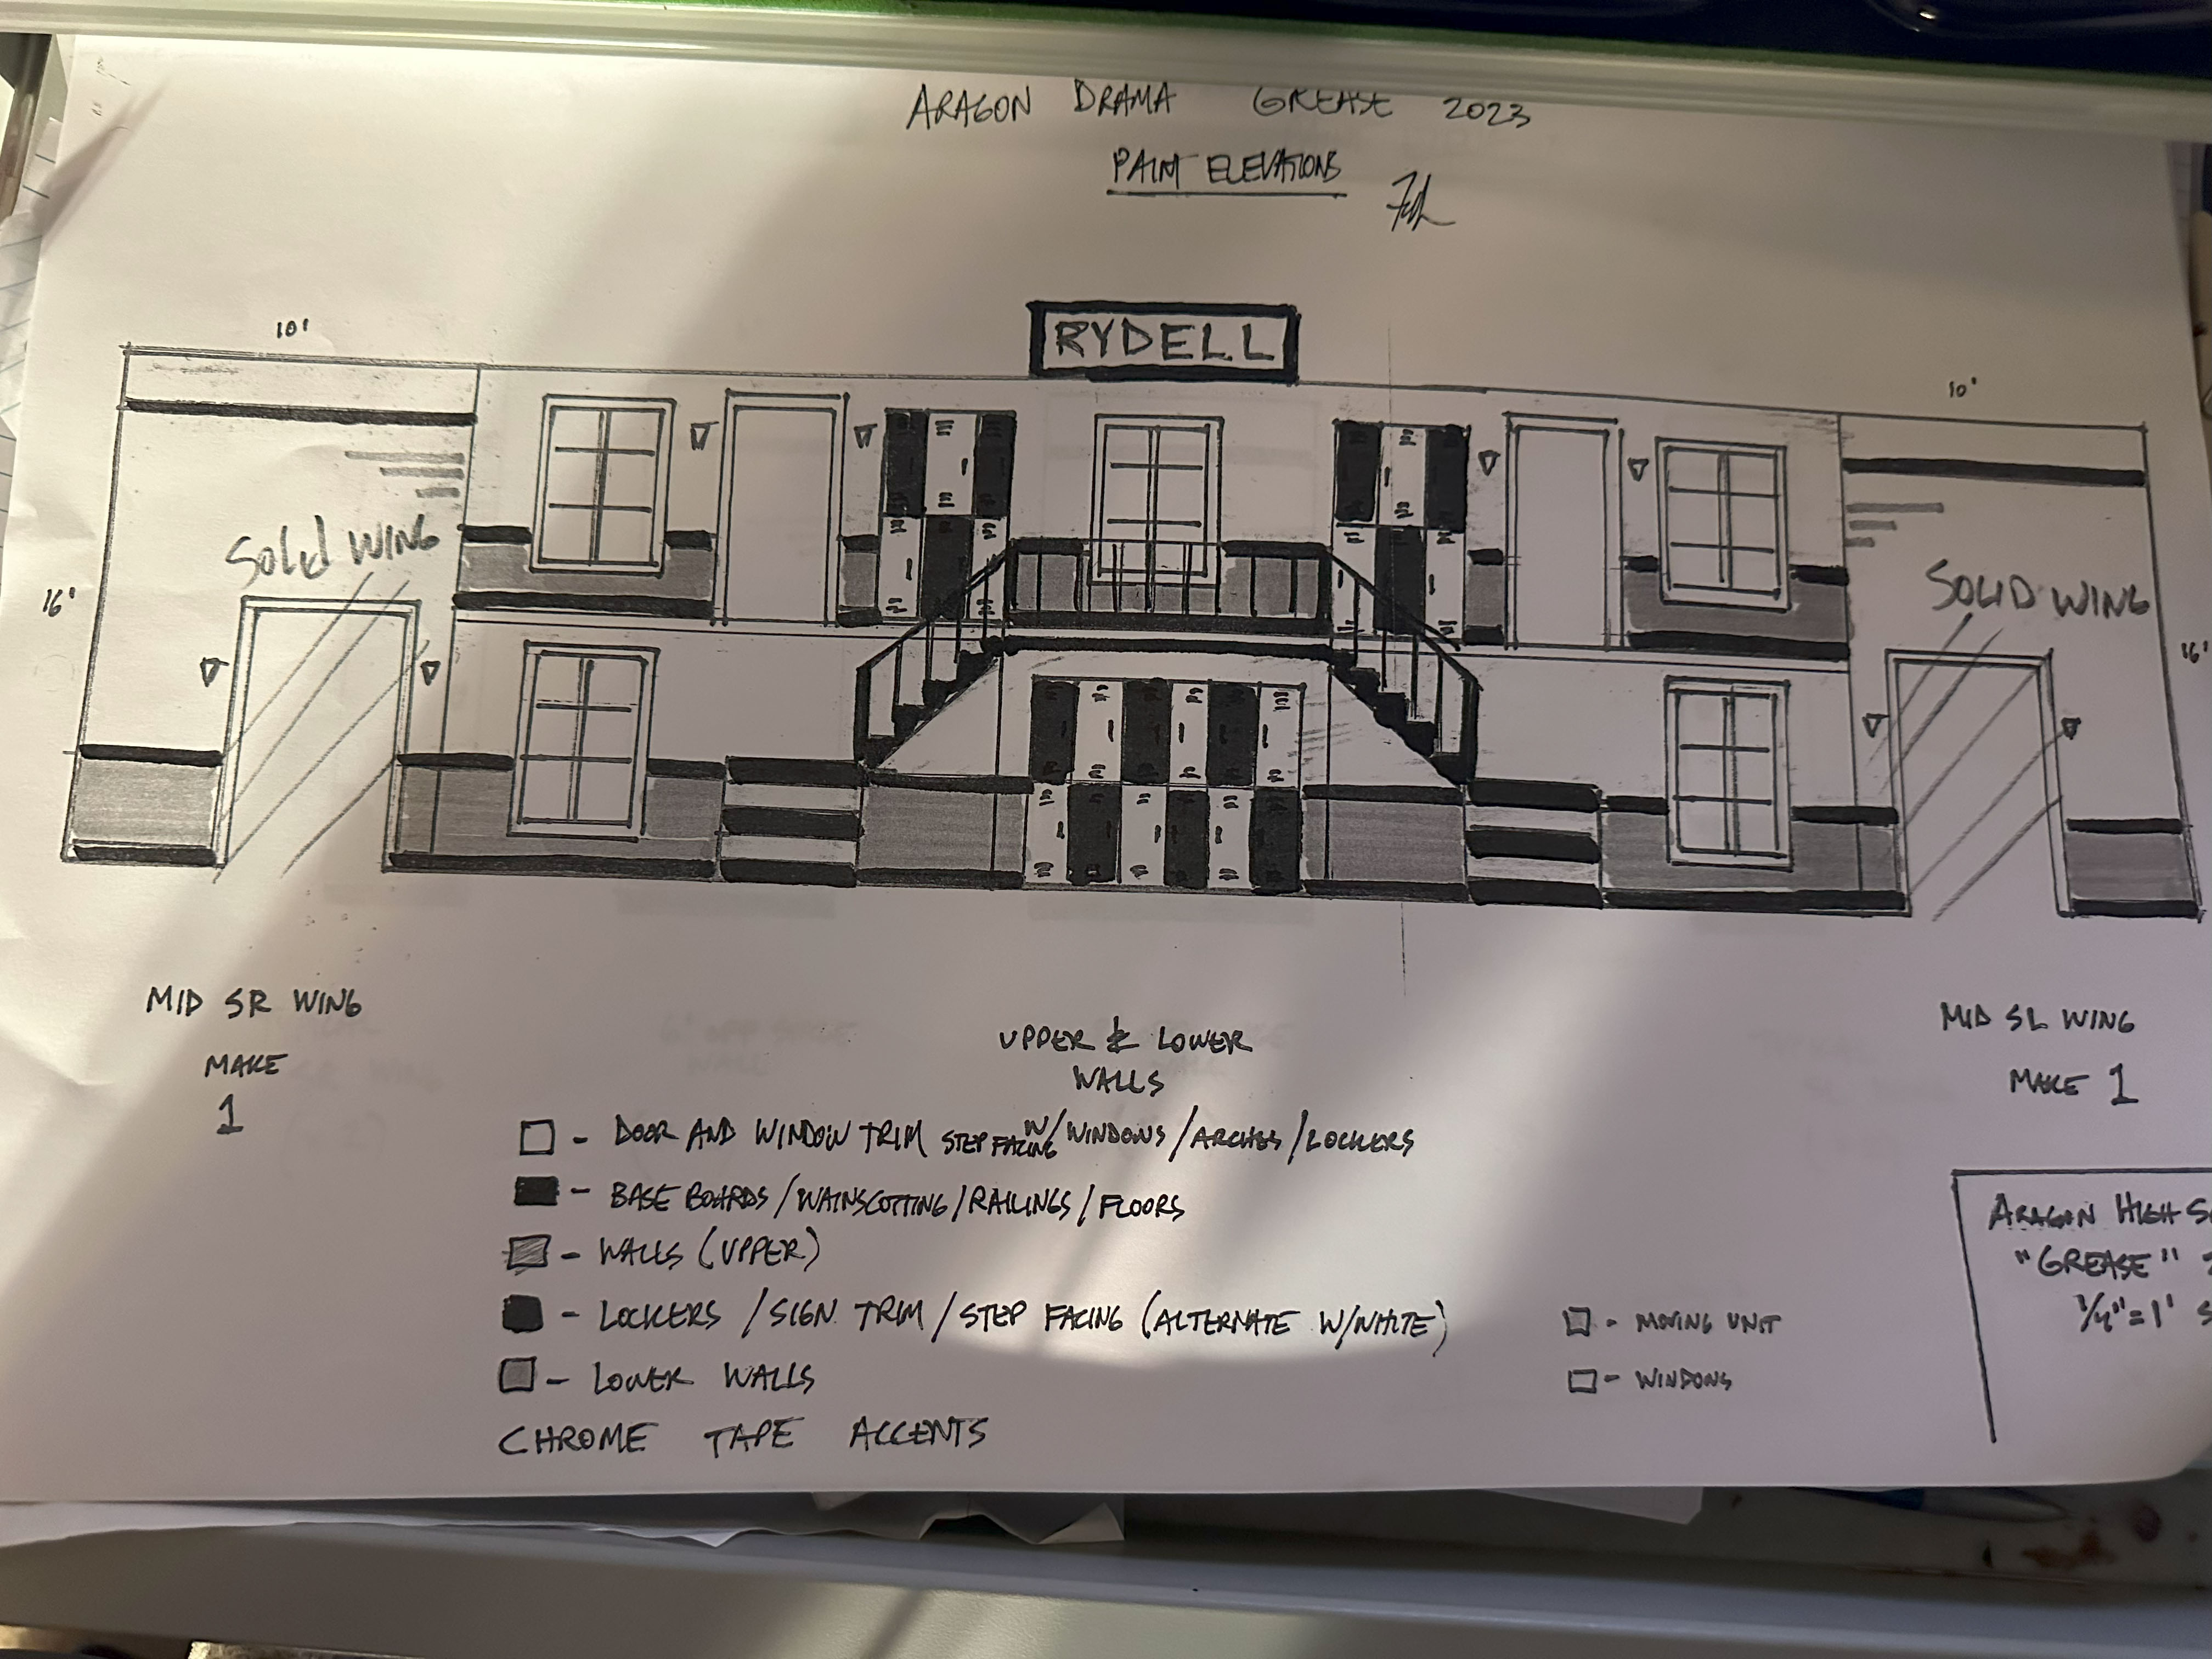 ARAGON DRAMA GREASE 2023
PAINT ELEVATIONS
RYDELL
10'
10'
SOLID WING
SOLID WING
16'
16'
MID SR WING
MAKE
1
UPPER & LOWER
WALLS
W/WINDOWS/ARCHES/LOCKERS
MID SL WING
MAKE 1
- DOOR AND WINDOW TRIM STEP FACING
- BASE BOARDS/WAINSCOTTING/RAILINGS/FLOORS
- WALLS (UPPER)
- LOCKERS /SIGN TRIM/STEP FACING (ALTERNATE W/WHITE)
- LOWER WALLS
CHROME TAPE ACCENTS
- MOVING UNIT
- WINDOWS
ARAGON HIGH
"GREASE"
1/4"=1'